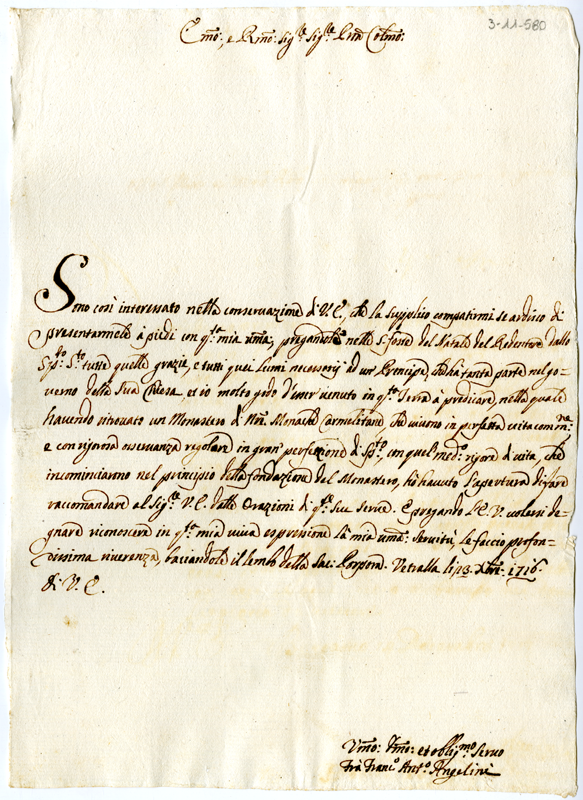 3-11-580
Emo:, e Rmo: Sigre Sigre Prn Colmo:
Sono così interessato nella conservazione di V. E., che la supplico compatirmi se ardisco di
presentarmele à piedi con qta mia uma:, pregandole nelle Ste feste del Natale del Redentore dallo
Spto Sto tutte quelle grazie, e tutti quei lumi necessarij ad un Principe, che hà tanta parte nel go-
verno della sua Chiesa. et io molto godo d'esser venuto in qta Terra a predicare, nella quale
havendo ritrovato un Monastero di Monache Carmelitane che vivono in perfetta vita comune:
e con rigorosa osservanza regolare in gran perfezione di Spto, con quel medo: rigore di vita, che
incominciarono nel principio della fondazione del Monastero, hò havuto l'apertura di fare
raccomandare al Sigre V. E. dalle Orazioni di qte sue serve. E pregando l'E. V. volersi de-
gnare riconoscere in qta mia viva espressione la mia uma: servitù, le faccio profon-
dissima riverenza, baciandole il lembo della Sac: Porpora. Vetralla li 13. Xbre: 1716.
di V. E.
Umo: Dmo: et obligmo Servo
Frà Franco Anto Angelini